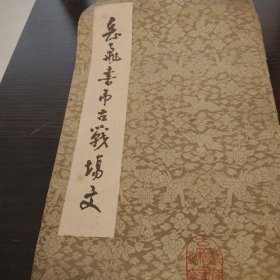 岳飛書吊古戰場文